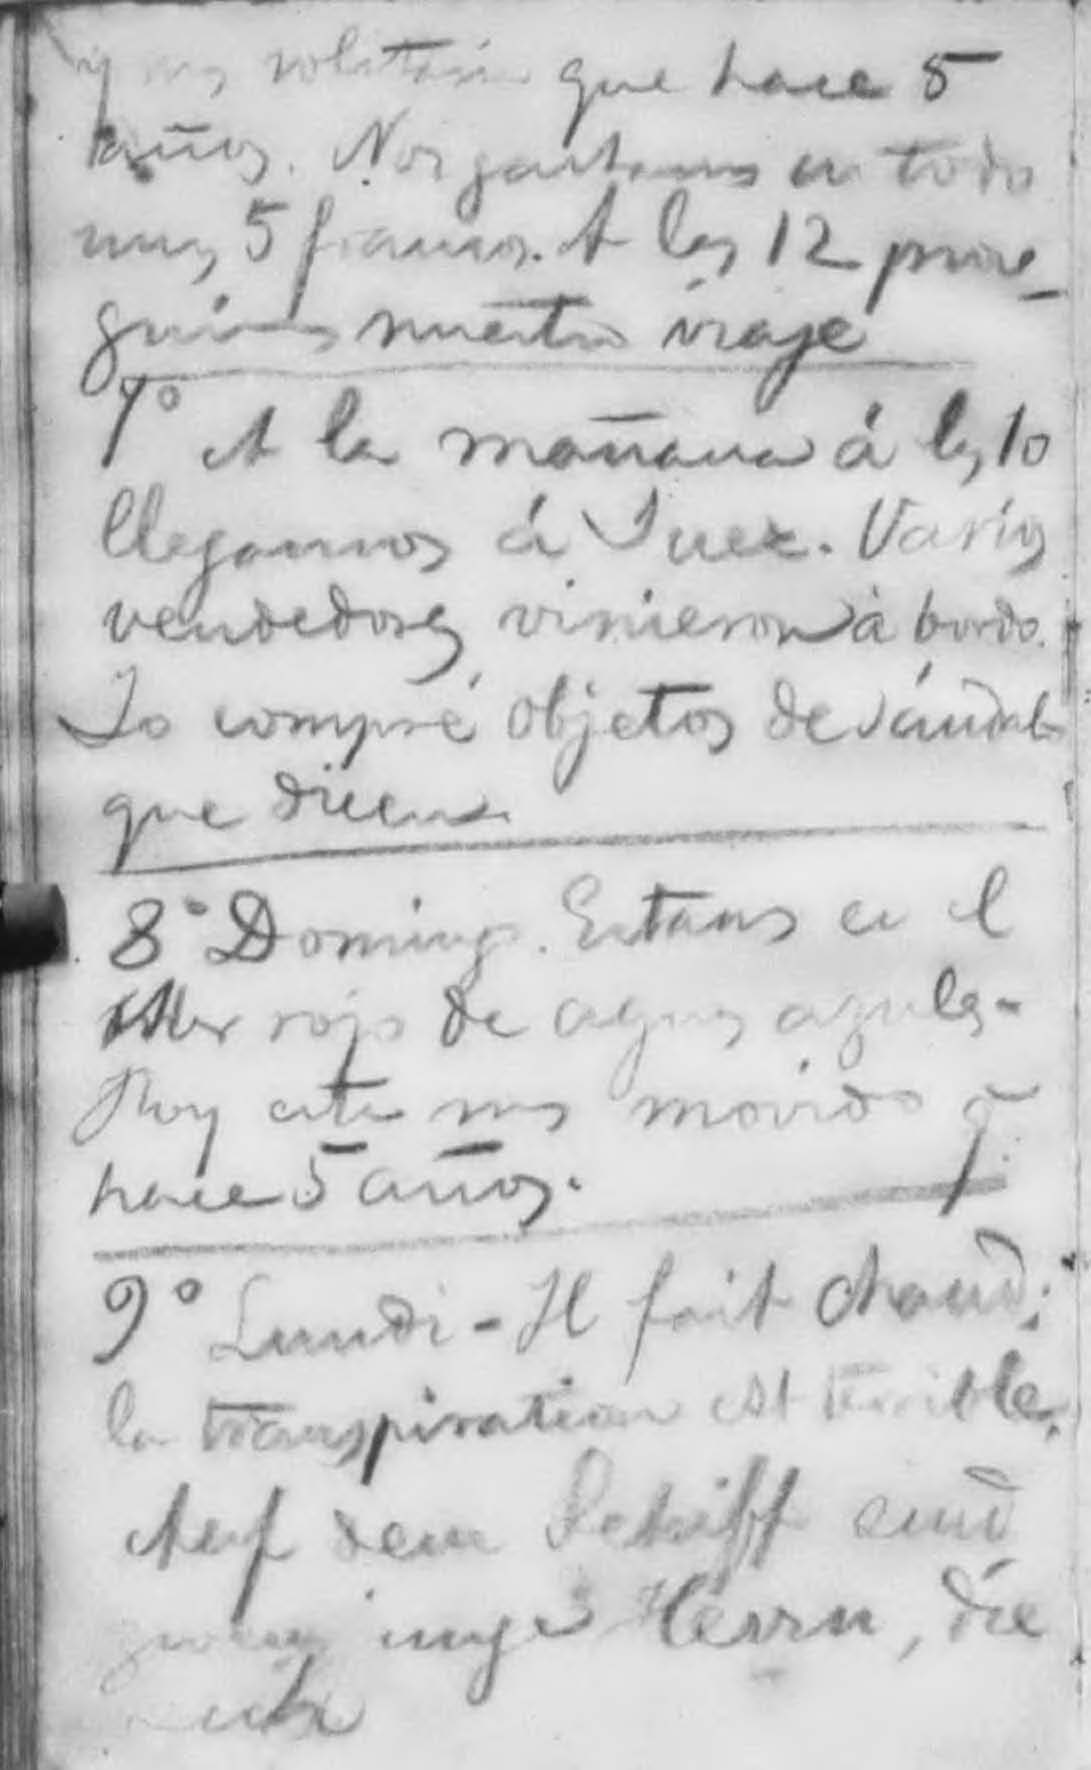 y mas solitario que hace 5
años. Nos gastamos en todo
unos 5 francos. A las 12 prose-
guimos nuestro viaje
7° A la mañana á las 10
llegamos á Suez. Varios
vendedores vinieron á bordo.
Yo compré objetos de sándalo
que dicen.
8° Domingo. Estamos en el
Mar rojo de aguas azules-
Hoy esta mas movido q̃.
hace 5 años.
9° Lundi - Il fait chaud;
la transpiration est terrible.
Auf dem Schiff sind
junge Herrn, die